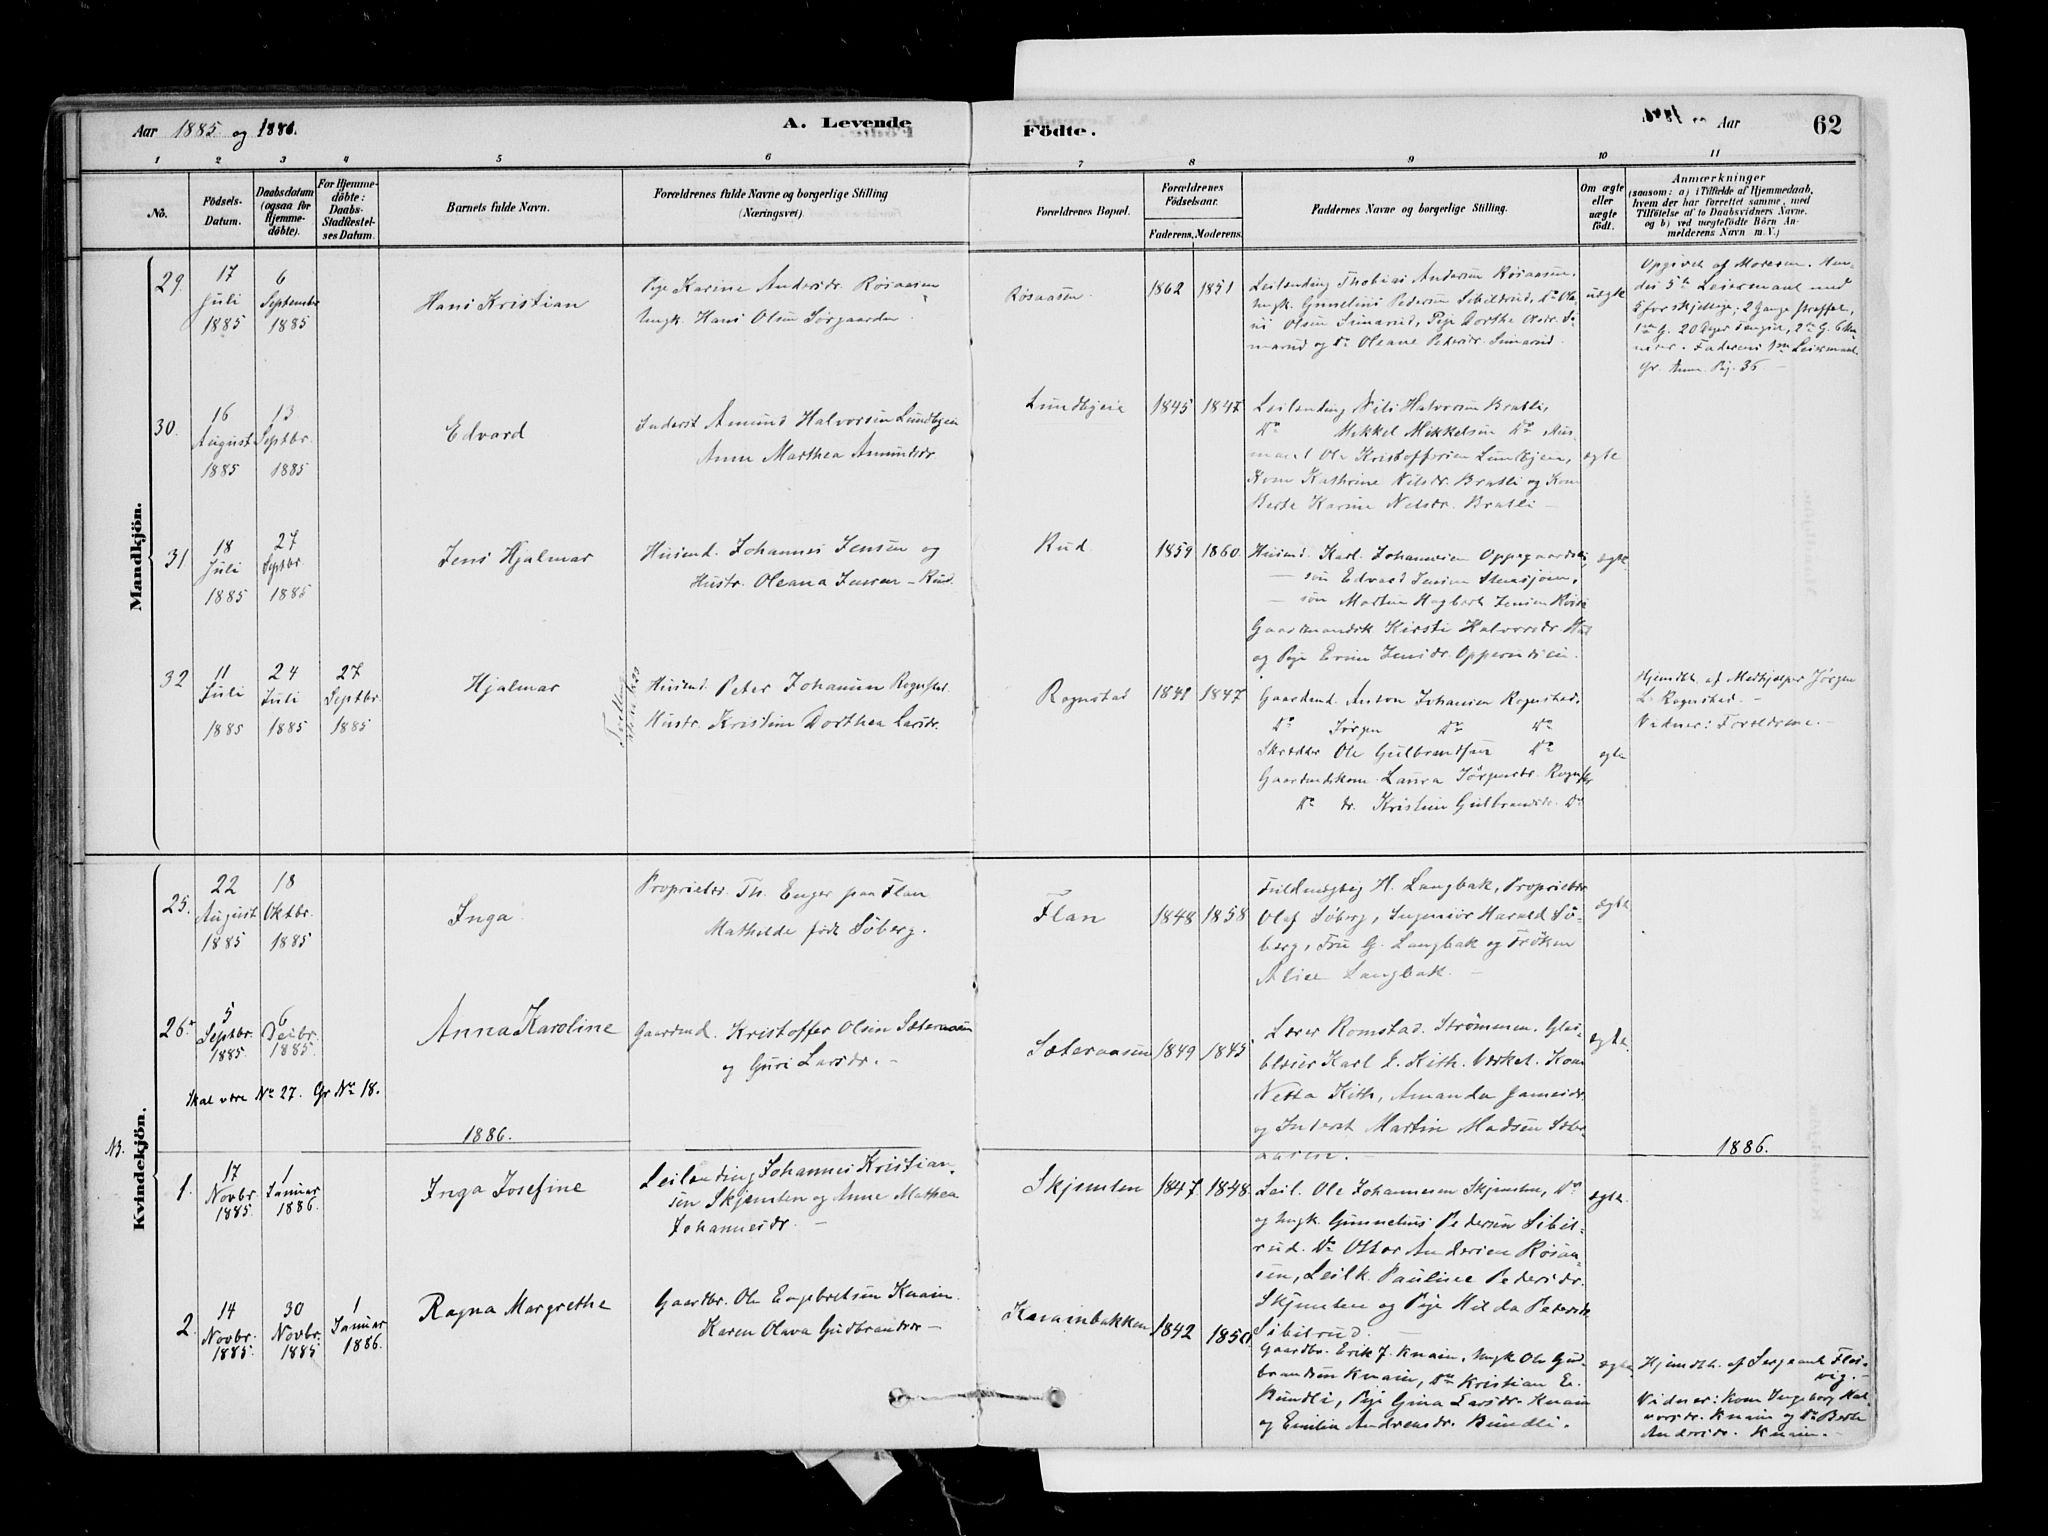 Aar 1885 og 1886.
A. Levende
Födte.
Aar
62
1 2 3 4 5 6 7 8 9 10 11
No.
Födsels-
Datum.
Daabsdatum
(ogsaa for
Hjemme-
döbte).
For Hjemme-
döbte:
Daabs-
Stadfæstel-
ses Datum.
Barnets fulde Navn.
Forældrenes fulde Navne og borgerlige Stilling
(Næringsvei)
Forældrenes Bopæl.
Forældrenes
Födselsaar.
Faderens. Moderens.
Faddernes Navne og borgerlige Stilling.
Om ægte
eller
uægte
födt.
Anmærkninger
(saasom: a) i Tilfælde af Hjemmedaab,
hvem der har forrettet samme, med
Tilföielse af to Daabsvidners Navne,
og b) ved uægtefödte Börn An-
melderens Navn m. V.)
Mandkjön.
29.
17
Juli
1885
6
Septembr
1885
Hans Kristian
Pige Karine Andersdr. Røsaasen
Ungk. Hans Olsen Sørgaarden
Røsaasen
1862 1851
Leilending Thobias Andersen Røsaasen,
Ungk. Gunnelius Pedersen Sibilrud, Do Ole
Olsen Simarud, Pige Dorthe Olsdr. Si-
marud og Do Oleane Pedersdr. Simarud.
uægte
Opgivet af Moderen. Hen-
des 5te Leiermaal med
5 forskjellige; 2 Gange straffet,
1ste G. 20 Dages Fængsel, 2den G. 6 Maa-
neder. Faderens 1ste Leiermaal.
Gr. Anm. Pig. 36 —
30.
16
August
1885
13
Septbr.
1885
Edvard
Inderst Amund Halvorsen Lundbyeie
Anne Marthea Amundsdr.
Lundbyeie
1845 1847
Leilending Nils Halvorsen Bratli,
Do Mikkel Mikkelsen Do, Hus-
mand Ole Kristoffersen Lundbyeie,
Kone Kathrine Nilsdr. Bratli og Kone
Berthe Karine Nilsdr. Bratli —
ægte
31
18
Juli
1885
27
Septbr.
1885
Jens Hjalmar
Husmd. Johannes Jensen og
Hustr. Oleana Jensen – Rud.
Rud
1859 1860
Husmd. Karl Johannesen Oppegaardseie,
— søn Edvard Jensen Stensjøen,
— søn Martin Hagbart Jensen
Gaardmandsk Kirsti Halvorsdr
og Pige Jensdr.
ægte
32
11
Juli
1885
24
Juli
1885
27
Septbr.
1885
Hjalmar
Husmd. Peter Johansen Rognstad
Hustr. Kristine Dorthea Larsdr.
Rognstad
1841 1847
Gaardmd. Anton Johansen Rognstad,
Do Jörgen Do Do
Skrædder Ole Gulbrandsen Do
Gaardmdskone Laura Jörgensdr. Rognstad
Do dr. Kristine Gulbrandsdr. Do
ægte
Hjemdöbt af Medhjælper Jörgen
L. Rognstad. —
Vidner: Forældrene. —
Kvindekjön.
25.
22
August
1885
18
Oktbr.
1885
Inga
Proprietær Th. Enger paa Flan
Mathilde født Söberg.
Flan
1848 1858
Fuldmægtig H. Langbak, Proprietær
Olaf Söberg, Ingeniör Harald Sö-
berg, Fru G. Langbak og Fröken
Alice Langbak. —
ægte
26.
5
Septbr.
1885.
6
Decbr.
1885.
Anna Karoline
Gaardmd. Kristoffer Olsen Sæteraasen
og Guri Larsdr. —
Sæteraasen
1849 1845
Lærer Romstad. Strömmen. Glas-
blæser Karl J. Kith. Værket. Kone
Netta Kith, Amanda Jamesdr.
og Inderst Martin Madsen Sæter-
aasen. —
ægte.
Skal være No 27. Gr No 18.
1886.
1886.
1.
17
Novbr
1885.
1
Januar
1886.
Inga Josefine
Leilending Johannes Kristian-
sen Skjemten og Anne Mathea
Johannesdr. —
Skjemten
1847 1848
Leil. Ole Johannesen Skjemten, Do
og Ungk. Gunnelius Pedersen Sibil-
rud. Do Ottar Andersen Røsaa-
sen, Leilk. Pauline Pedersdr.
Skjemten og Pige Hilda Pedersdr.
Sibilrud. —
ægte.
2.
14
Novbr.
1885.
30
Novbr.
1885
1
Januar
1886.
Ragna Margrethe
Gaardbr. Ole Engebretsen Knain.
Karen Olava Gudbrandsdr —
Knainbakken
1842 1850
Gaardbr. Erik J. Knain, Ungk Ole Gud-
brandsen Knain, Do Kristian E.
Bundli, Pige Gina Larsdr. Knain
og Emilie Andreasdr. Bundli.
ægte
Hjemdöbt. af Sergeant Fles-
vig. —
Vidner: Kone Ingeborg Hal-
vorsdr. Knain og Do Berthe
Andersdr. Knain. —